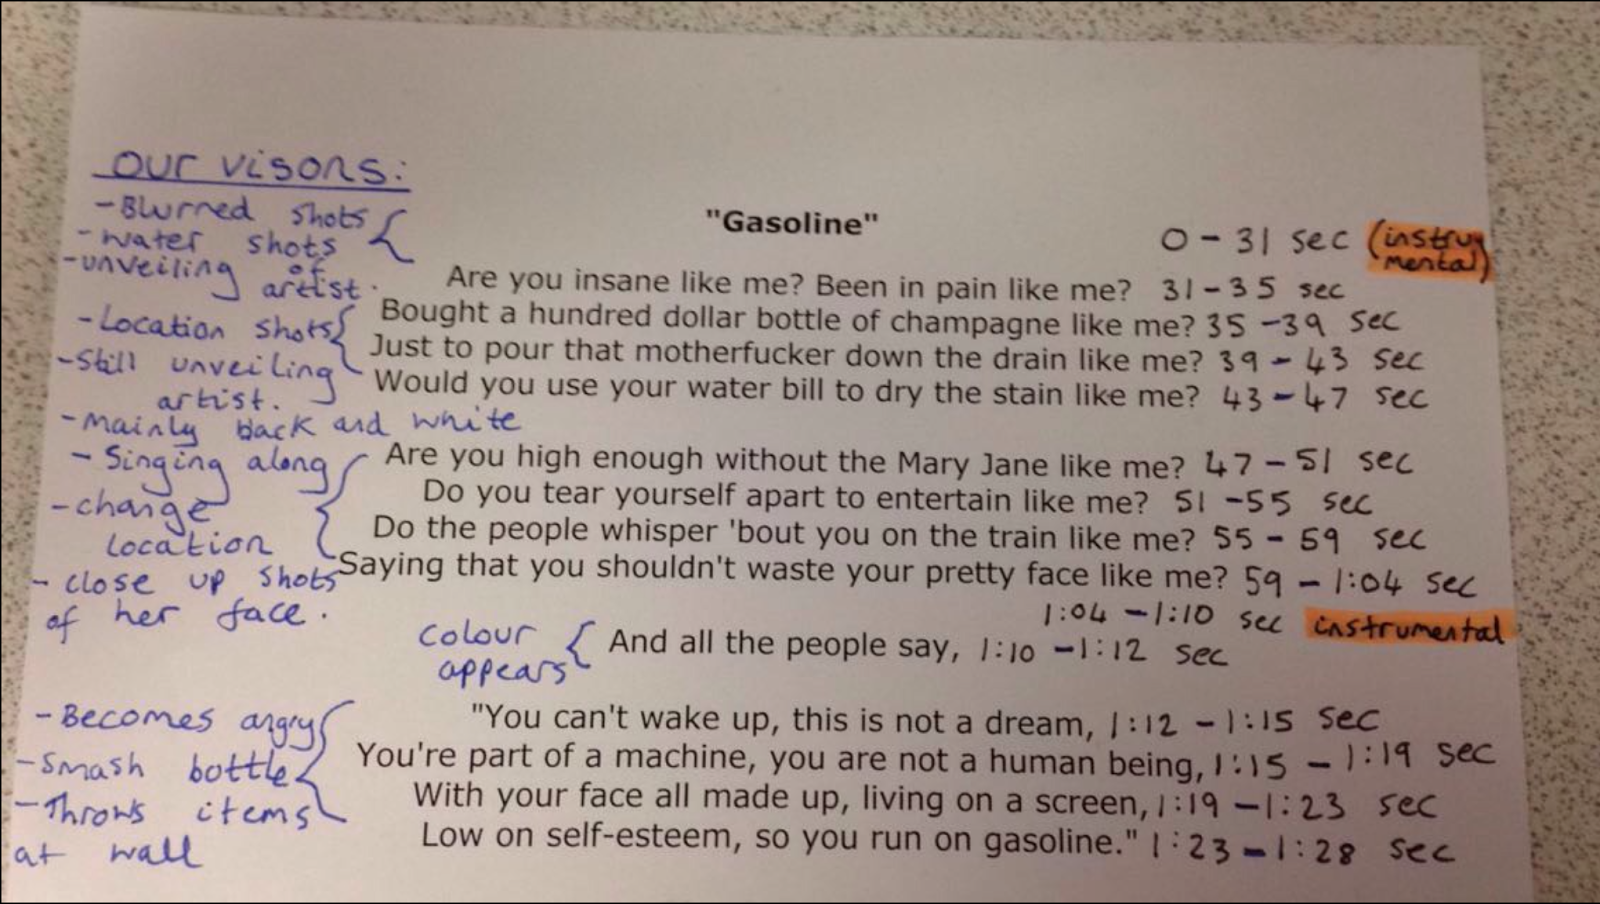 our visons:
- Blurred shots
- water shots
- unveiling of
artist.
"Gasoline"
0 - 31 sec (instru
mental)
Are you insane like me? Been in pain like me? 31 - 35 sec
- Location shots
Bought a hundred dollar bottle of champagne like me? 35 - 39 sec
Just to pour that motherfucker down the drain like me? 39 - 43 sec
- Still unveiling
artist.
Would you use your water bill to dry the stain like me? 43 - 47 sec
- Mainly back and white
- Singing along
Are you high enough without the Mary Jane like me? 47 - 51 sec
- change
location
Do you tear yourself apart to entertain like me? 51 - 55 sec
Do the people whisper 'bout you on the train like me? 55 - 59 sec
- close up shots
of her face.
Saying that you shouldn't waste your pretty face like me? 59 - 1:04 sec
1:04 - 1:10 sec instrumental
colour
appears
And all the people say, 1:10 - 1:12 sec
- Becomes angry
"You can't wake up, this is not a dream, 1:12 - 1:15 sec
- Smash bottle
You're part of a machine, you are not a human being, 1:15 - 1:19 sec
- Throws items
at wall
With your face all made up, living on a screen, 1:19 - 1:23 sec
Low on self-esteem, so you run on gasoline." 1:23 - 1:28 sec